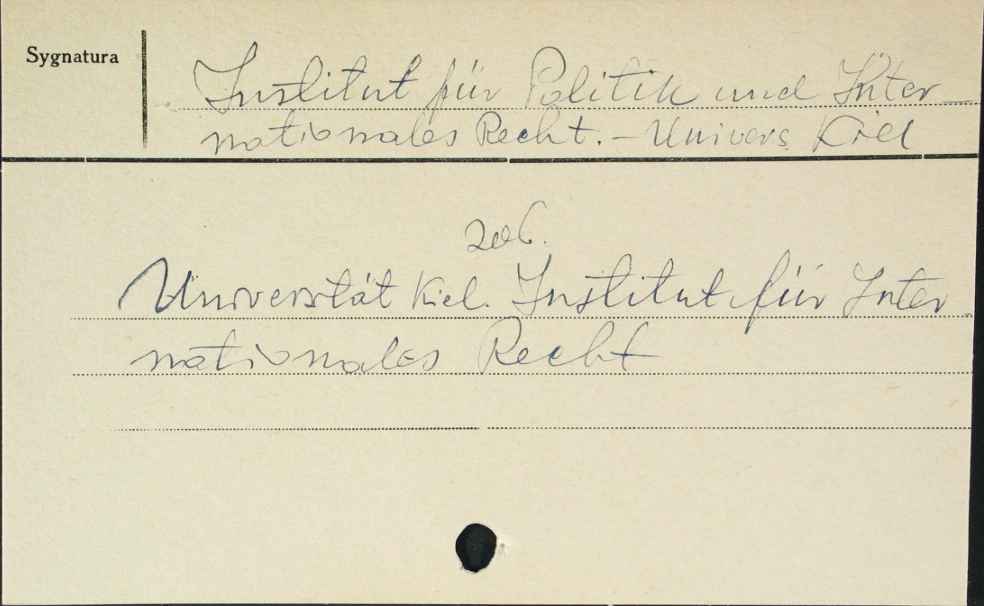 Sygnatura
Institut für Politik und Inter
nationales Recht. - Univers. Kiel
zob.
Universität Kiel. Institut für Inter
nationales Recht